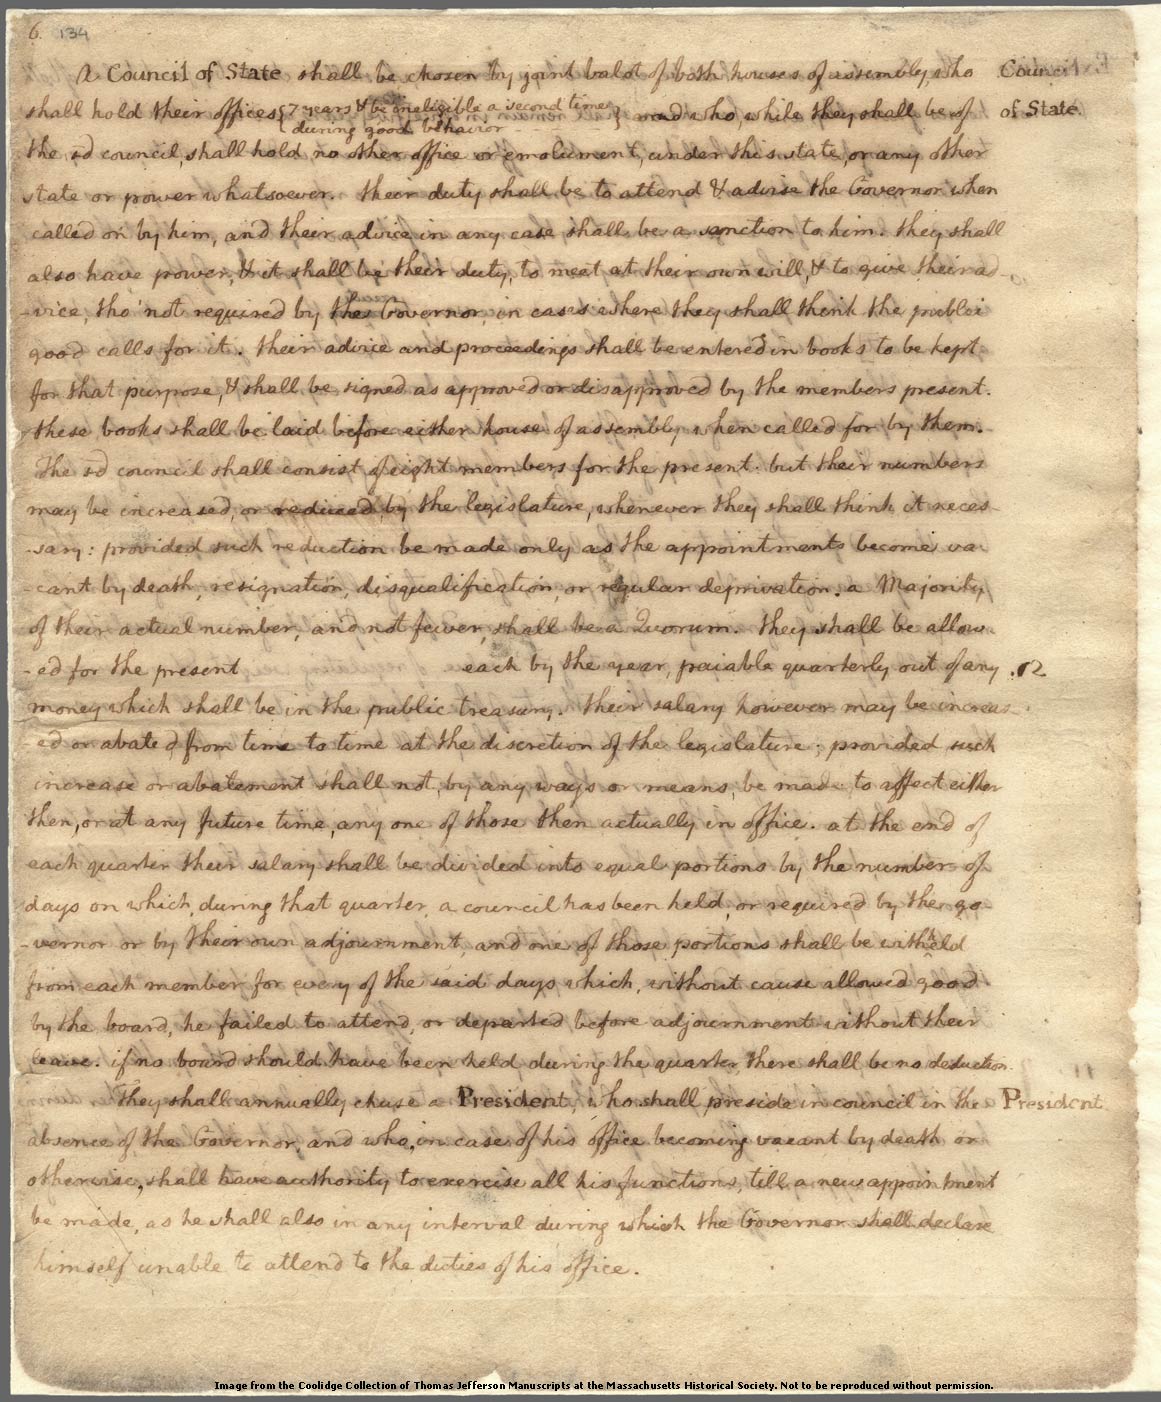 6. 134
A Council of State shall be chosen by joint balot of both houses of assembly, who Council
shall hold their offices {7 years & be ineligible a second time} and who, while they shall be of of State.
during good behavior
the sd council, shall hold no other office or emolument, under this state, or any other
state or power whatsoever. their duty shall be to attend & advise the Governor when
called on by him, and their advice in any case shall be a sanction to him. they shall
also have power, & it shall be their duty, to meet at their own will, & to give their ad-
-vice, tho' not required by the Governor, in cases where they shall think the public
good calls for it. their advice and proceedings shall be entered in books to be kept
for that purpose, & shall be signed as approved or disapproved by the members present.
these books shall be laid before either house of assembly when called for by them.
The sd council shall consist of eight members for the present: but their numbers
may be increased, or reduced, by the legislature, whenever they shall think it neces-
-sary: provided such reduction be made only as the appointments become va-
-cant by death, resignation, disqualification, or regular deprivation. a Majority
of their actual number, and not fewer, shall be a Quorum. they shall be allow-
-ed for the present each by the year, paiable quarterly out of any
money which shall be in the public treasury. their salary however may be increas-
-ed or abated, from time to time at the discretion of the legislature; provided such
increase or abatement shall not, by any ways or means, be made to affect either
then, or at any future time, any one of those then actually in office. at the end of
each quarter their salary shall be divided into equal portions by the number of
days on which, during that quarter, a council has been held, or required by the go-
-vernor or by their own adjournment, and one of those portions shall be withheld
from each member for every of the said days which, without cause allowed good
by the board, he failed to attend, or departed before adjournment without their
leave. if no board should have been held during the quarter, there shall be no deduction.
They shall annually chuse a President, who shall preside in council in the President
absence of the Governor, and who, in case of his office becoming vacant by death or
otherwise, shall have authority to exercise all his functions, till a new appointment
be made, as he shall also in any interval during which the Governor shall declare
himself unable to attend to the duties of his office.
Image from the Coolidge Collection of Thomas Jefferson Manuscripts at the Massachusetts Historical Society. Not to be reproduced without permission.